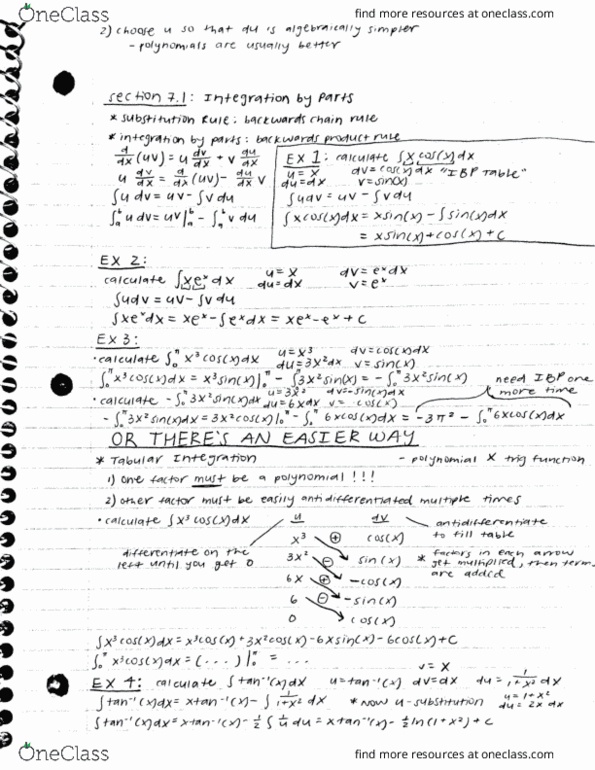 OneClass
find more resources at oneclass.com
2) choose u so that du is algebraically simpler
- polynomials are usually better
section 7.1: Integration by Parts
* substitution Rule: backwards chain rule
* integration by parts: backwards product rule
d/dx (uv) = u dv/dx + v du/dx
u dv/dx = d/dx (uv) - du/dx v
∫u dv = uv - ∫v du
∫ₐᵇ u dv = uv|ₐᵇ - ∫ₐᵇ v du
EX 1: calculate ∫x cos(x)dx
u = x dv = cos(x)dx "IBP Table"
du = dx v = sin(x)
∫udv = uv - ∫vdu
∫xcos(x)dx = xsin(x) - ∫sin(x)dx
= xsin(x) + cos(x) + C
EX 2:
calculate ∫xeˣdx u = x dv = eˣdx
du = dx v = eˣ
∫udv = uv - ∫vdu
∫xeˣdx = xeˣ - ∫eˣdx = xeˣ - eˣ + C
EX 3:
• calculate ∫₀^π x³cos(x)dx u = x³ dv = cos(x)dx
du = 3x²dx v = sin(x)
∫₀^π x³cos(x)dx = x³sin(x)|₀^π - ∫₀^π 3x²sin(x) = -∫₀^π 3x²sin(x)
need IBP one more time
• calculate -∫₀^π 3x²sin(x)dx u = 3x² dv = -sin(x)dx
du = 6xdx v = cos(x)
-∫₀^π 3x²sin(x)dx = 3x²cos(x)|₀^π - ∫₀^π 6xcos(x)dx = -3π² - ∫₀^π 6xcos(x)dx
OR THERE'S AN EASIER WAY
* Tabular Integration - polynomial x trig function
1) one factor must be a polynomial !!!
2) other factor must be easily antidifferentiated multiple times
• calculate ∫x³cos(x)dx u dv
antidifferentiate to fill table
differentiate on the left until you get 0
x³ + cos(x)
3x² - sin(x)
6x + -cos(x)
6 - -sin(x)
0 cos(x)
* factors in each arrow get multiplied, then terms are added
∫x³cos(x)dx = x³cos(x) + 3x²cos(x) - 6xsin(x) - 6cos(x) + C
∫₀^π x³cos(x)dx = (...)|₀^π = ...
EX 4: calculate ∫tan⁻¹(x)dx u = tan⁻¹(x) dv = dx v = x du = 1/(1+x²) dx
∫tan⁻¹(x)dx = xtan⁻¹(x) - ∫ 1/(1+x²) dx * now u-substitution u = 1+x²
du = 2x dx
∫tan⁻¹(x)dx = xtan⁻¹(x) - ½ ∫ 1/u du = x tan⁻¹(x) - ½ ln(1+x²) + C
OneClass
find more resources at oneclass.com